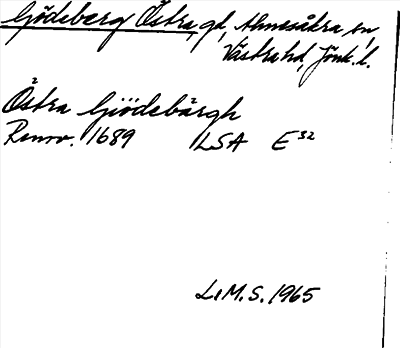 Gödeberg Östra, gd, Almesåkra sn,
Västra hd, Jönk. l.
Östra Giödebärgh
Renov. 1689 LSA E32
L.M.S. 1965